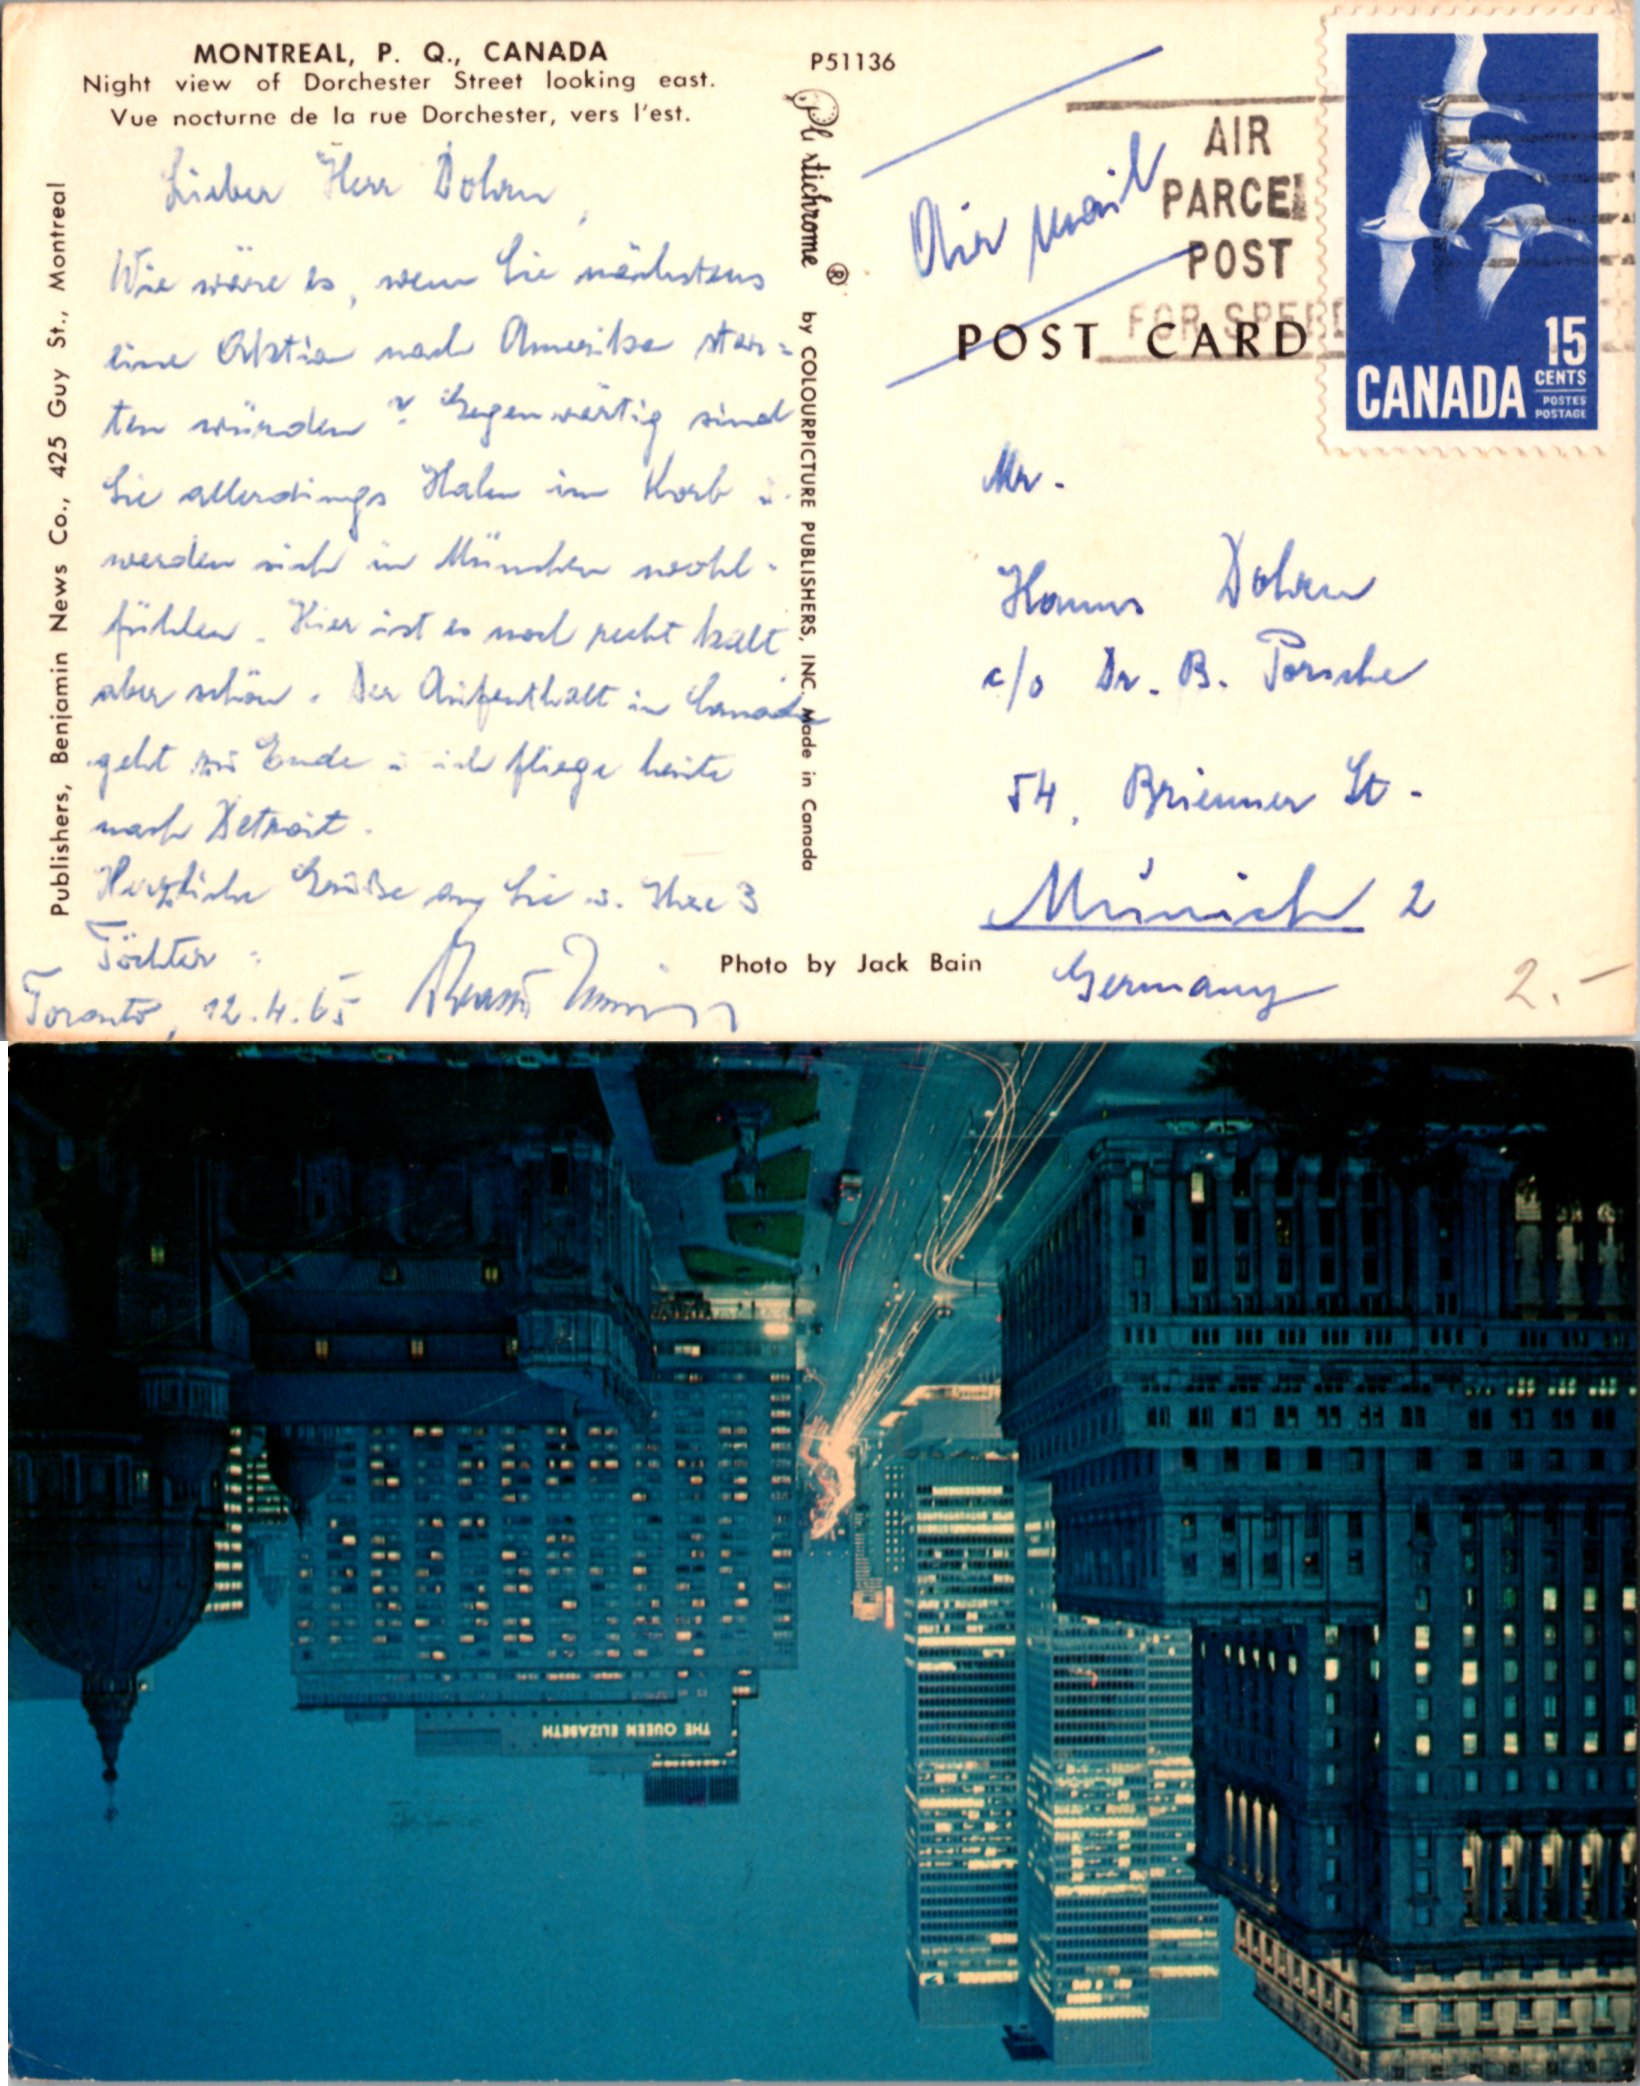 MONTREAL, P. Q., CANADA
Night view of Dorchester Street looking east.
Vue nocturne de la rue Dorchester, vers l'est.
Lieber Herr Dohrn,
Wie wäre es, wenn Sie nächstens
eine Aktion nach Amerika star=
ten würden? Gegenwärtig sind
Sie allerdings Hahn im Korb u.
werden sich in München wohl-
fühlen. Hier ist es noch recht kalt
aber schön. Der Aufenthalt in Canada
geht zu Ende u. ich fliege heute
nach Detroit.
Herzliche Grüße an Sie u. Ihre 3
Töchter.
Toronto, 12.4.65
Publishers, Benjamin News Co., 425 Guy St., Montreal
P51136
Plastichrome ® by COLOURPICTURE PUBLISHERS, INC. Made in Canada
Photo by Jack Bain
Air mail
AIR
PARCEL
POST
FOR SPEED
POST CARD
15
CENTS
CANADA
POSTES
POSTAGE
Mr.
Hanns Dohrn
c/o Dr. B. Porsche
54, Brienner St.
Munich 2
Germany
2.-
THE QUEEN ELIZABETH